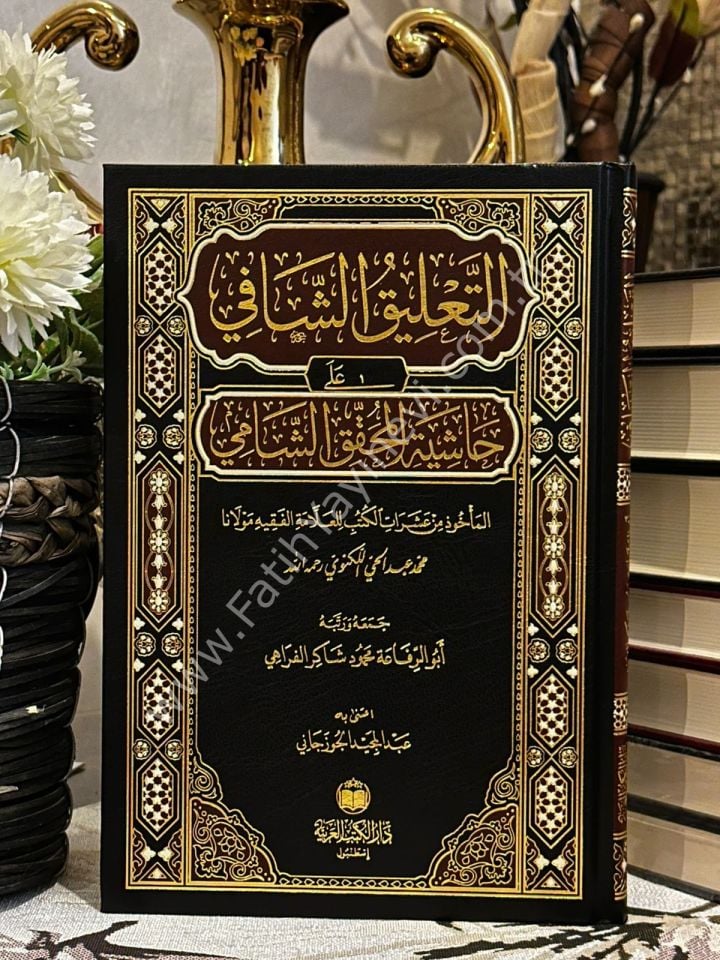 التَّعْلِيقُ الشَّافِي
عَلَى
حَاشِيَةِ المُحَقِّقِ الشَّامِي
المَأْخُوذُ مِنْ عَشَرَاتِ الكُتُبِ لِلْعَلَّامَةِ الفَقِيهِ مَوْلَانَا
محمد عبد الحي اللكنوي رحمه الله
جَمَعَهُ وَرَتَّبَهُ
أَبُو الرِّفَاعَة مَحْمُود شَاكِر الفَرَاهِي
اعتنى به
عَبْد المَجِيد الجَوْزَجَانِي
دَارُ الكُتُبِ العَرَبِيَّةِ
إسطنبول
www.FatihYayinevi.com.tr